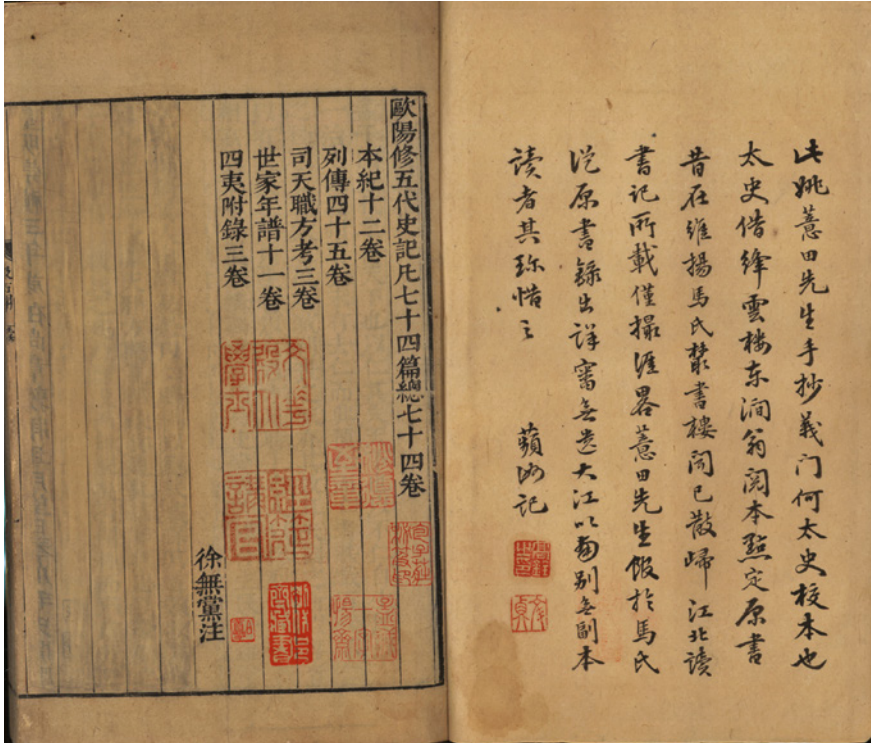 此姚薏田先生手抄義门何太史校本也
太史借绛雲楼东涧翁阅本點定原書
昔在維揚馬氏叢書楼闻已散歸江北讀
書记所載僅撮涯畧薏田先生假於馬氏
從原書錄出詳審無遗大江以南别無副本
读者其珎惜之 蘋洲记
歐陽修五代史記凡七十四篇總七十四卷
本紀十二卷
列傳四十五卷
司天職方考三卷
世家年譜十一卷
四夷附錄三卷
徐無黨注